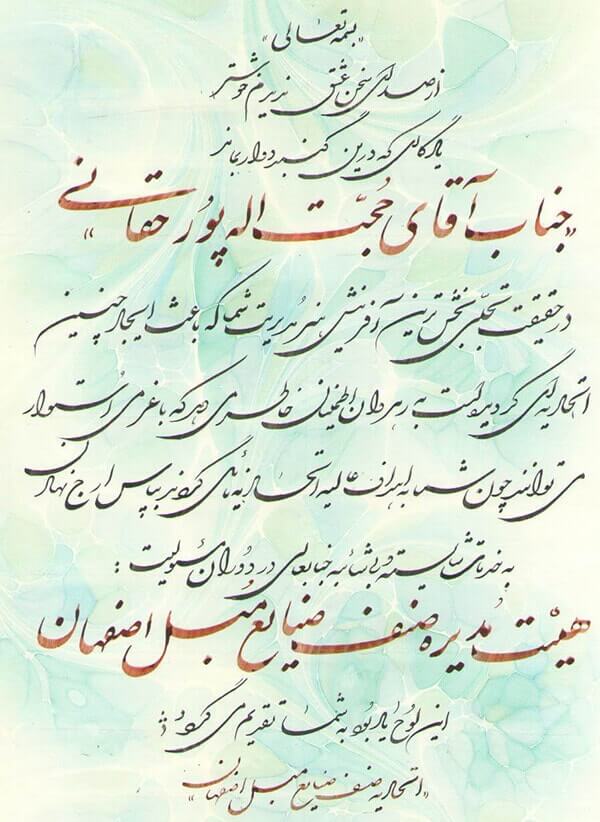 «بسمه تعالی»
از صدای سخن عشق ندیدم خوشتر
یادگاری که درین گنبد دوار بماند
«جناب آقای حُجّت اله پور حقانی»
در حقیقت تجلّی بخش ترین آفرینش هنر مُدیریت شما که باعث ایجاد چنین
اتحادیه ای گردیده است به رهروان اطمینان خاطر می دهد که با عزمی اُستوار
می توانند چون شما به اهداف عالیه اتحادیه نائل گردند بپاس ارج نهادن
به خدمات شایسته و بی شائبه جنابعالی در دوران مسئولیت :
هیئت مُدیره صنف صنایع مُبل اصفهان
این لوح یادبود به شما تقدیم می گردد :
«اتحادیه صنف صنایع مبل اصفهان»